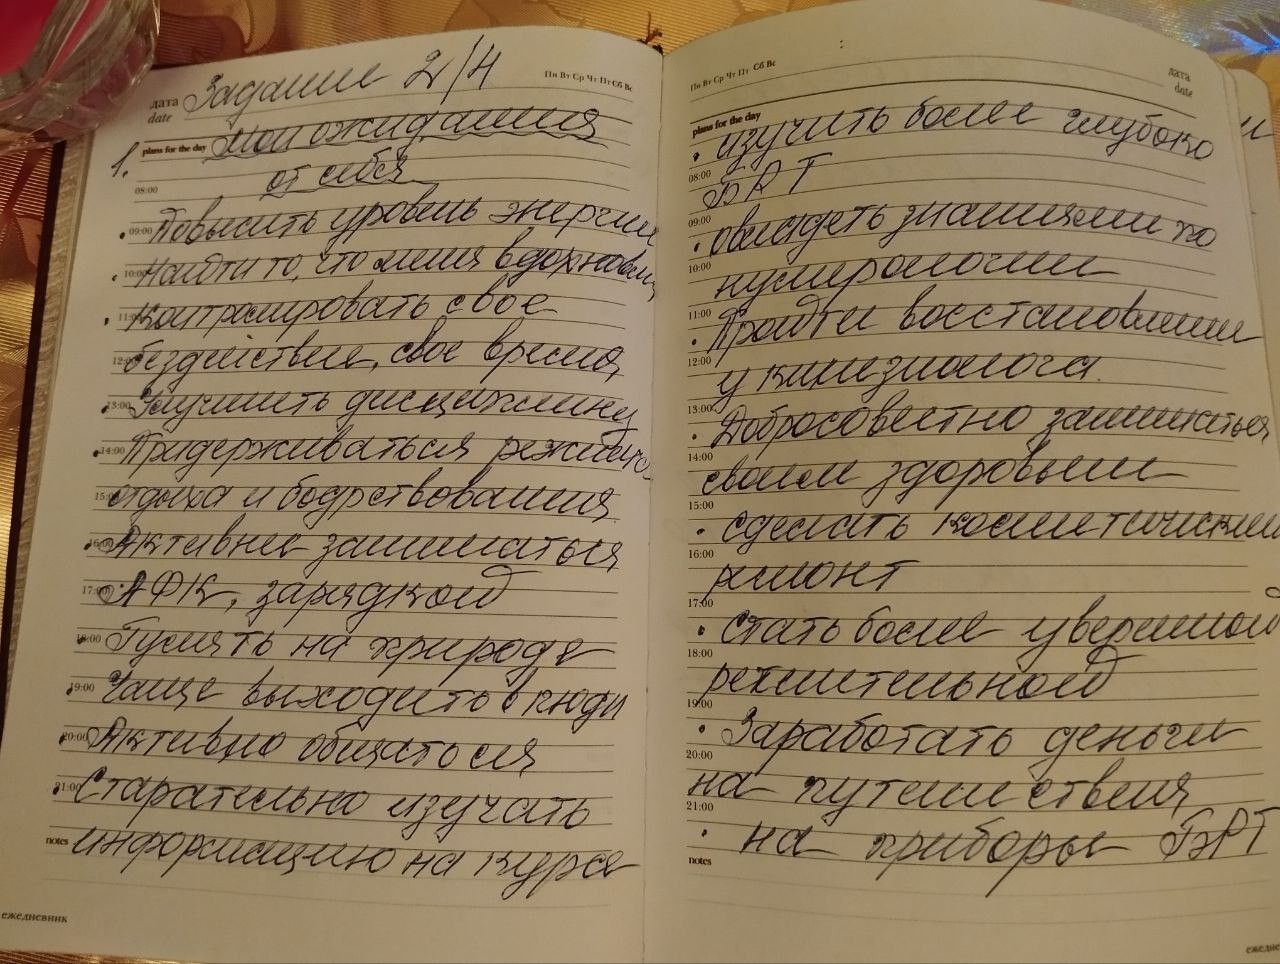 Задание 2/4
Пн Вт Ср Чт Пт Сб Вс
дата
date
plans for the day
1. Мои ожидания
от себя
08:00
09:00
• Повысить уровень энергии
10:00
• Найти то, что меня вдохновляет
11:00
• Контролировать свое
12:00
бездействие, свое время
13:00
• Улучшить дисциплину
14:00
• Придерживаться режима
15:00
отдыха и бодрствования
16:00
• Активнее заниматься
17:00
АФК, зарядкой
18:00
• Гулять на природе
19:00
• Чаще выходить в люди
20:00
• Активно общаться
21:00
• Старательно изучать
notes
информацию на курсе
ежедневник
Пн Вт Ср Чт Пт Сб Вс
дата
date
plans for the day
• изучить более глубоко
08:00
БРТ
09:00
• овладеть знаниями по
10:00
нумерологии
11:00
• Пройти восстановление
12:00
у кинезиолога.
13:00
• Добросовестно заниматься
14:00
своим здоровьем
15:00
• сделать косметический
16:00
ремонт
17:00
• стать более уверенной
18:00
решительной
19:00
• Заработать деньги
20:00
на путешествия
21:00
• на приборы БРТ
notes